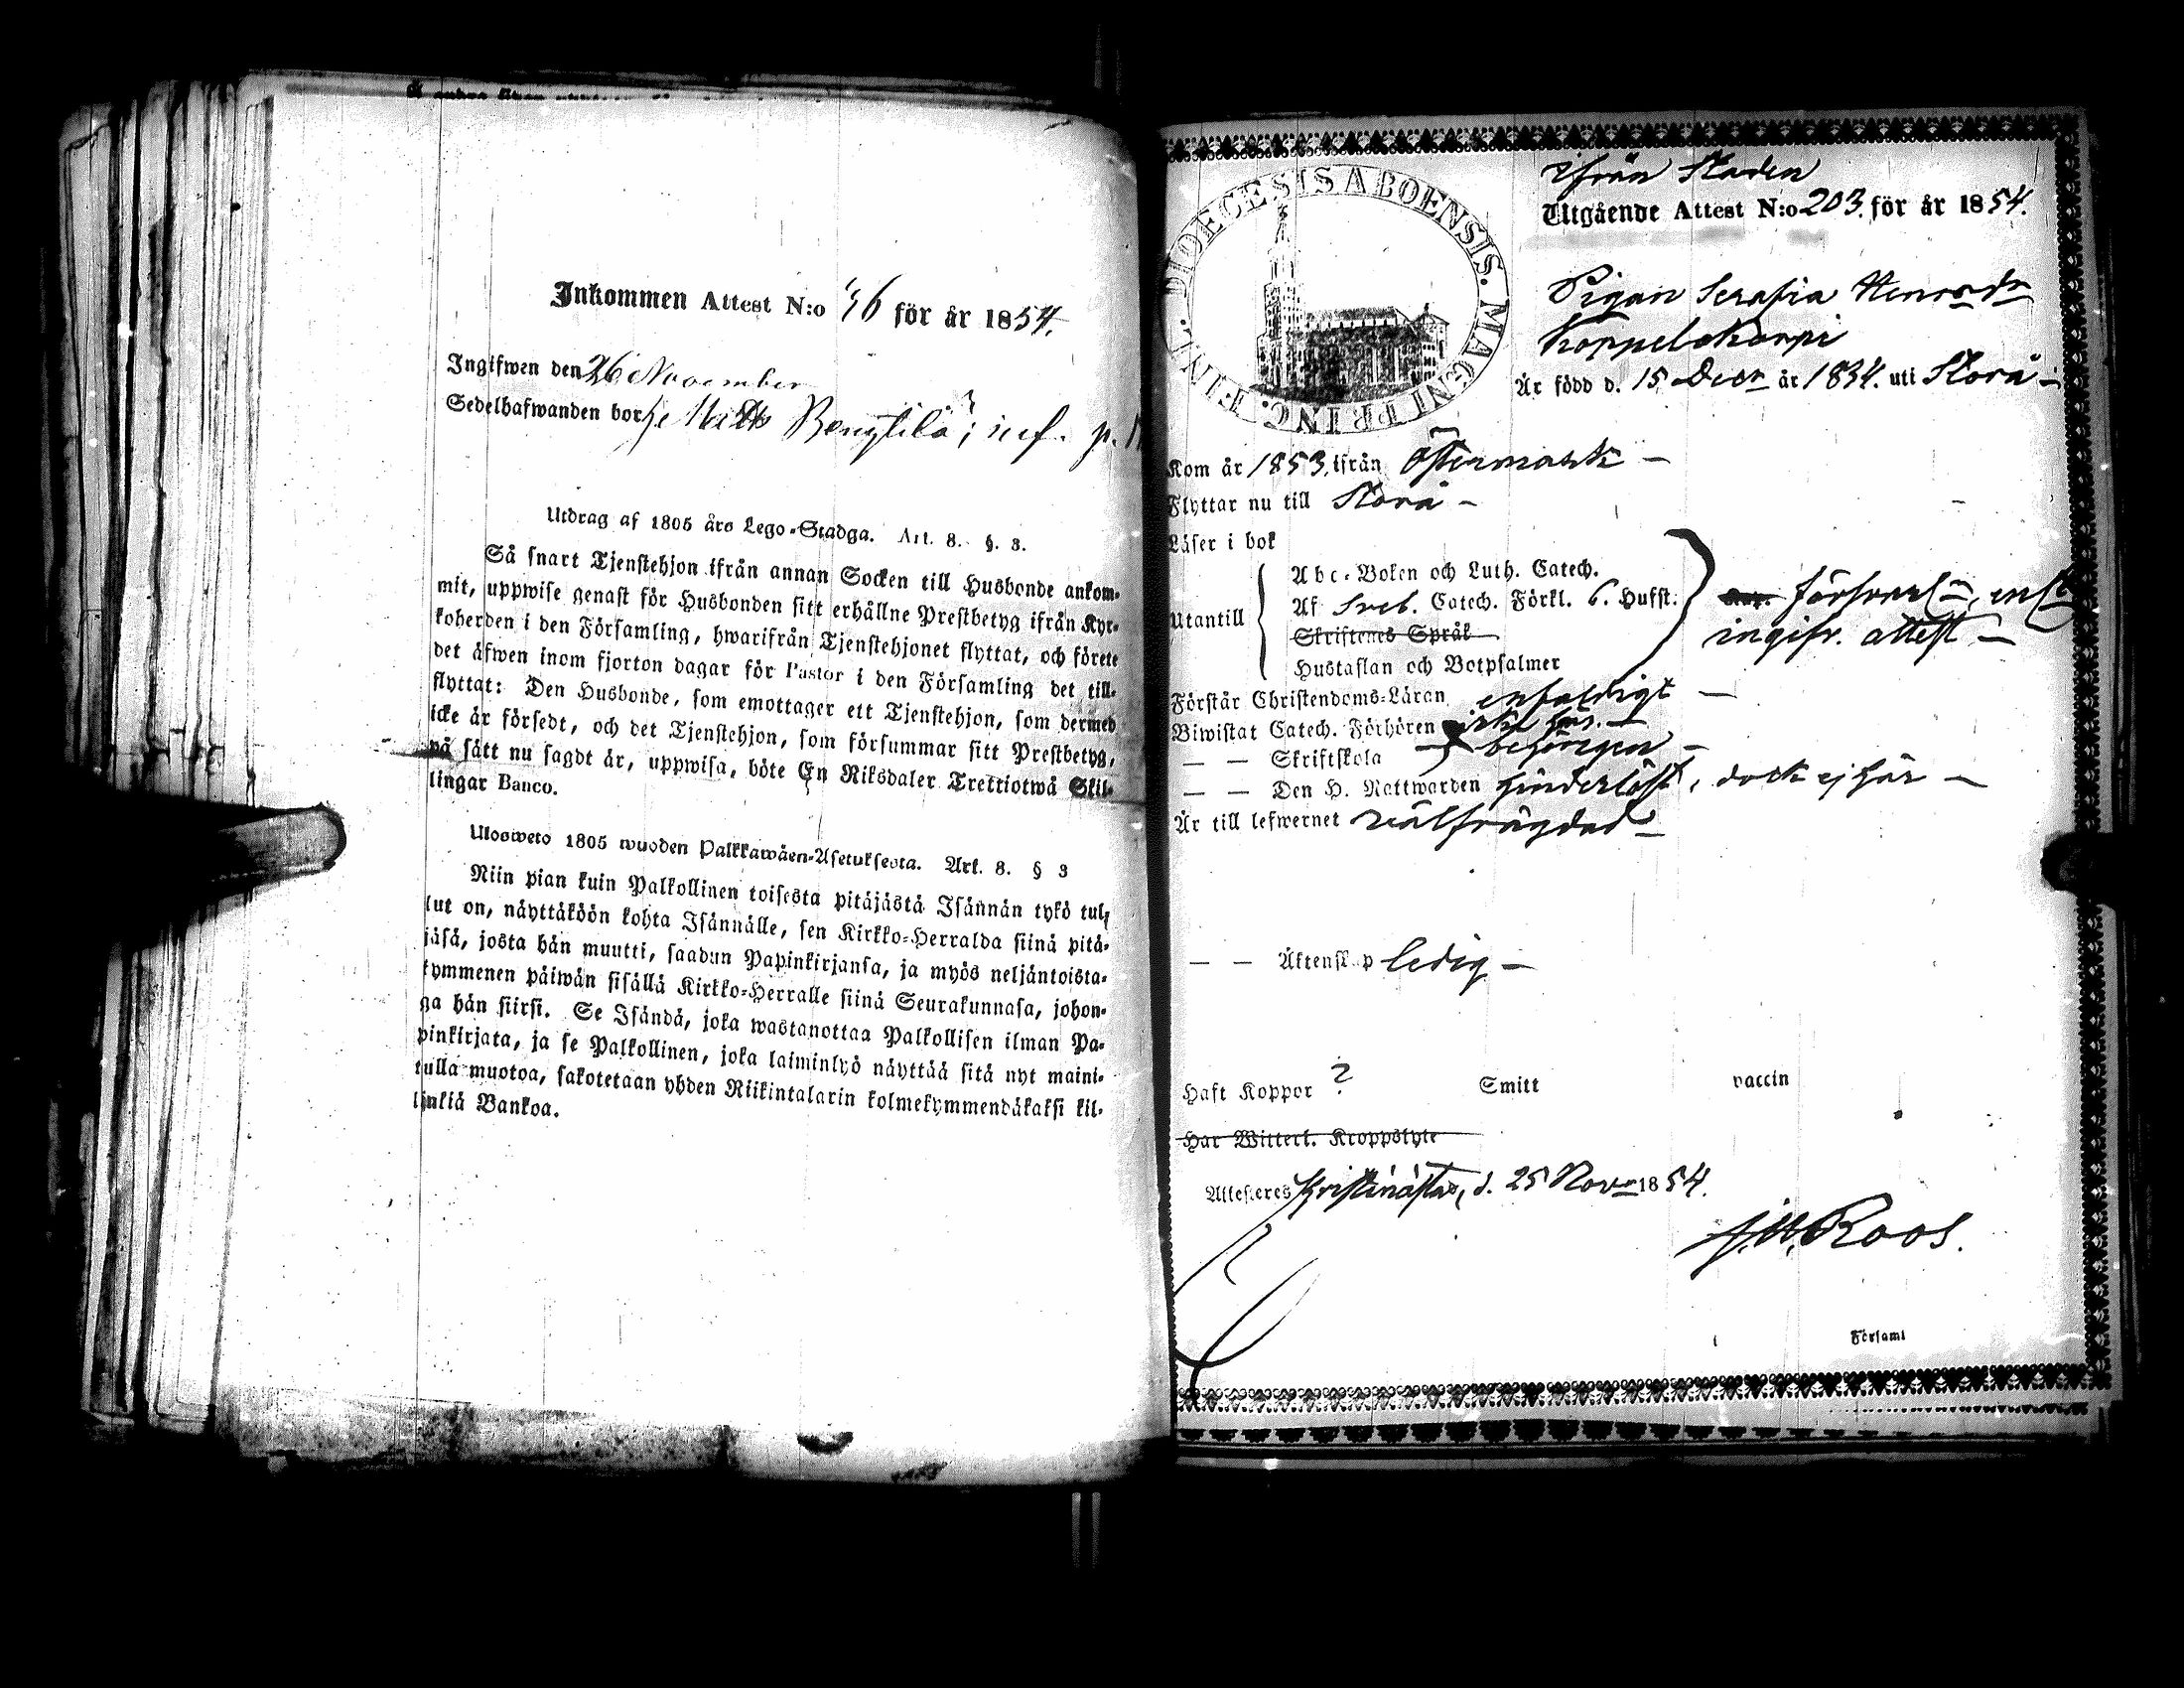 Inkommen Attest N:o 46 för år 1854.
Ingifwen den 26 November
Sedelhafwanden bor
Utdrag af 1805 års Lego-Stadga. Art. 8. §. 3.
Så snart Tjenstehjon ifrån annan Socken till Husbonde ankom-
mit, uppwise genast för Husbonden sitt erhållne Prestbetyg ifrån Kyr-
koherden i den Församling, hwarifrån Tjenstehjonet flyttat, och förete
det äfwen inom fjorton dagar för Pastor i den Församling det till-
flyttat: Den Husbonde, som emottager ett Tjenstehjon, som dermed
icke är försedt, och det Tjenstehjon, som försummar sitt Prestbetyg,
på sätt nu sagdt är, uppwisa, böte En Riksdaler Trettiotwå Skil-
lingar Banco.
Ulosweto 1805 wuoden Palkkawäen-Asetuksesta. Art. 8. § 3
Niin pian kuin Palkollinen toisesta pitäjästä Isännän tykö tul-
lut on, näyttäköön kohta Isännälle, sen Kirkko-Herralda siinä pitä-
jäsä, josta hän muutti, saadun Papinkirjansa, ja myös neljäntoista-
kymmenen päiwän sisällä Kirkko-Herralle siinä Seurakunnasa, johon-
ga hän siirsi. Se Isändä, joka wastanottaa Palkollisen ilman Pa-
pinkirjata, ja se Palkollinen, joka laiminlyö näyttää sitä nyt maini-
tulla muotoa, sakotetaan yhden Riikintalarin kolmekymmendäkaksi kil-
linkiä Bankoa.
DIOECESIS ABOENSIS. MAGNI PRINC. FINL.
ifrån Staden
Utgående Attest N:o 203. för år 1854.
Pigan Serafia Henrsdr
Koppelokarpi
Är född d. 15 Decr år 1834. uti Storå –
Kom år 1853. ifrån Östermark –
Flyttar nu till Storå –
Läser i bok
Utantill
Abc-Boken och Luth. Catech.
Af Sveb. Catech. Förkl. 6. Hufst.
Skriftenes Språk
Hustaflan och Botpsalmer
ingifv. attest –
Förstår Christendoms-Läran enfaldigt –
Biwistat Catech. Förhören
— — Skriftskola behörigen –
— — Den H. Nattwarden hinderlöst, dock ej här –
Är till lefwernet välfrägdad –
— — Äktenskap ledig –
Haft Koppor ? Smitt vaccin
Har Witterl. Kroppslyte
Attesteres Kristinästad, d. 25 Novr 1854.
Roos.
Församl